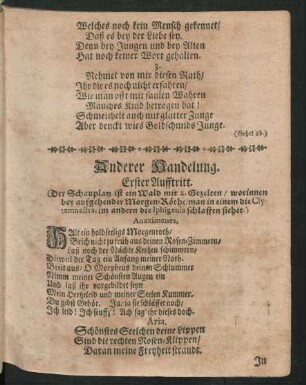 Welches noch kein Mensch gekennet/
Daß es bey der Liebe sey.
Denn bey Jungen und bey Alten
Hat noch keiner Wort gehalten.
3.
Nehmet von mir diesen Rath/
Ihr die es noch nicht erfahren/
Wie man offt mit faulen Wahren
Manches Kind betrogen hat!
Schmeichelt auch mit glatter Zunge
Aber denckt wies Goldschmids Junge.
(Gehet ab.)
Anderer Handelung.
Erster Aufftritt.
(Der Schauplatz ist ein Wald mit 2. Gezelten/ worinnen
bey auffgehender Morgen-Röthe man in einem die Cly-
temnestra, im andern die Iphigenia schlaffen siehet.)
Anaximenes.
HAlt ein holdseeligs Morgenroth/
Brich nicht zu früh aus deinen Rosen-Zimmern/
Laß noch der Nächte Kertzen schimmern/
Dieweil der Tag ein Anfang meiner Noth.
Breit aus/ O Morpheus deinen Schlummer
Nimm meiner Schönsten Augen ein
Und laß ihr vorgebildet seyn
Mein Hertzleid und meiner Seelen Kummer.
Du gibst Gehör. Ja/ ja sie schläffet noch/
Ich leid! Ich seuff;! Ach sag' ihr dieses doch.
Aria.
Schönstes Seelchen deine Lippen
Sind die rechten Rosen-Klippen/
Daran meine Freyheit strandt.
In